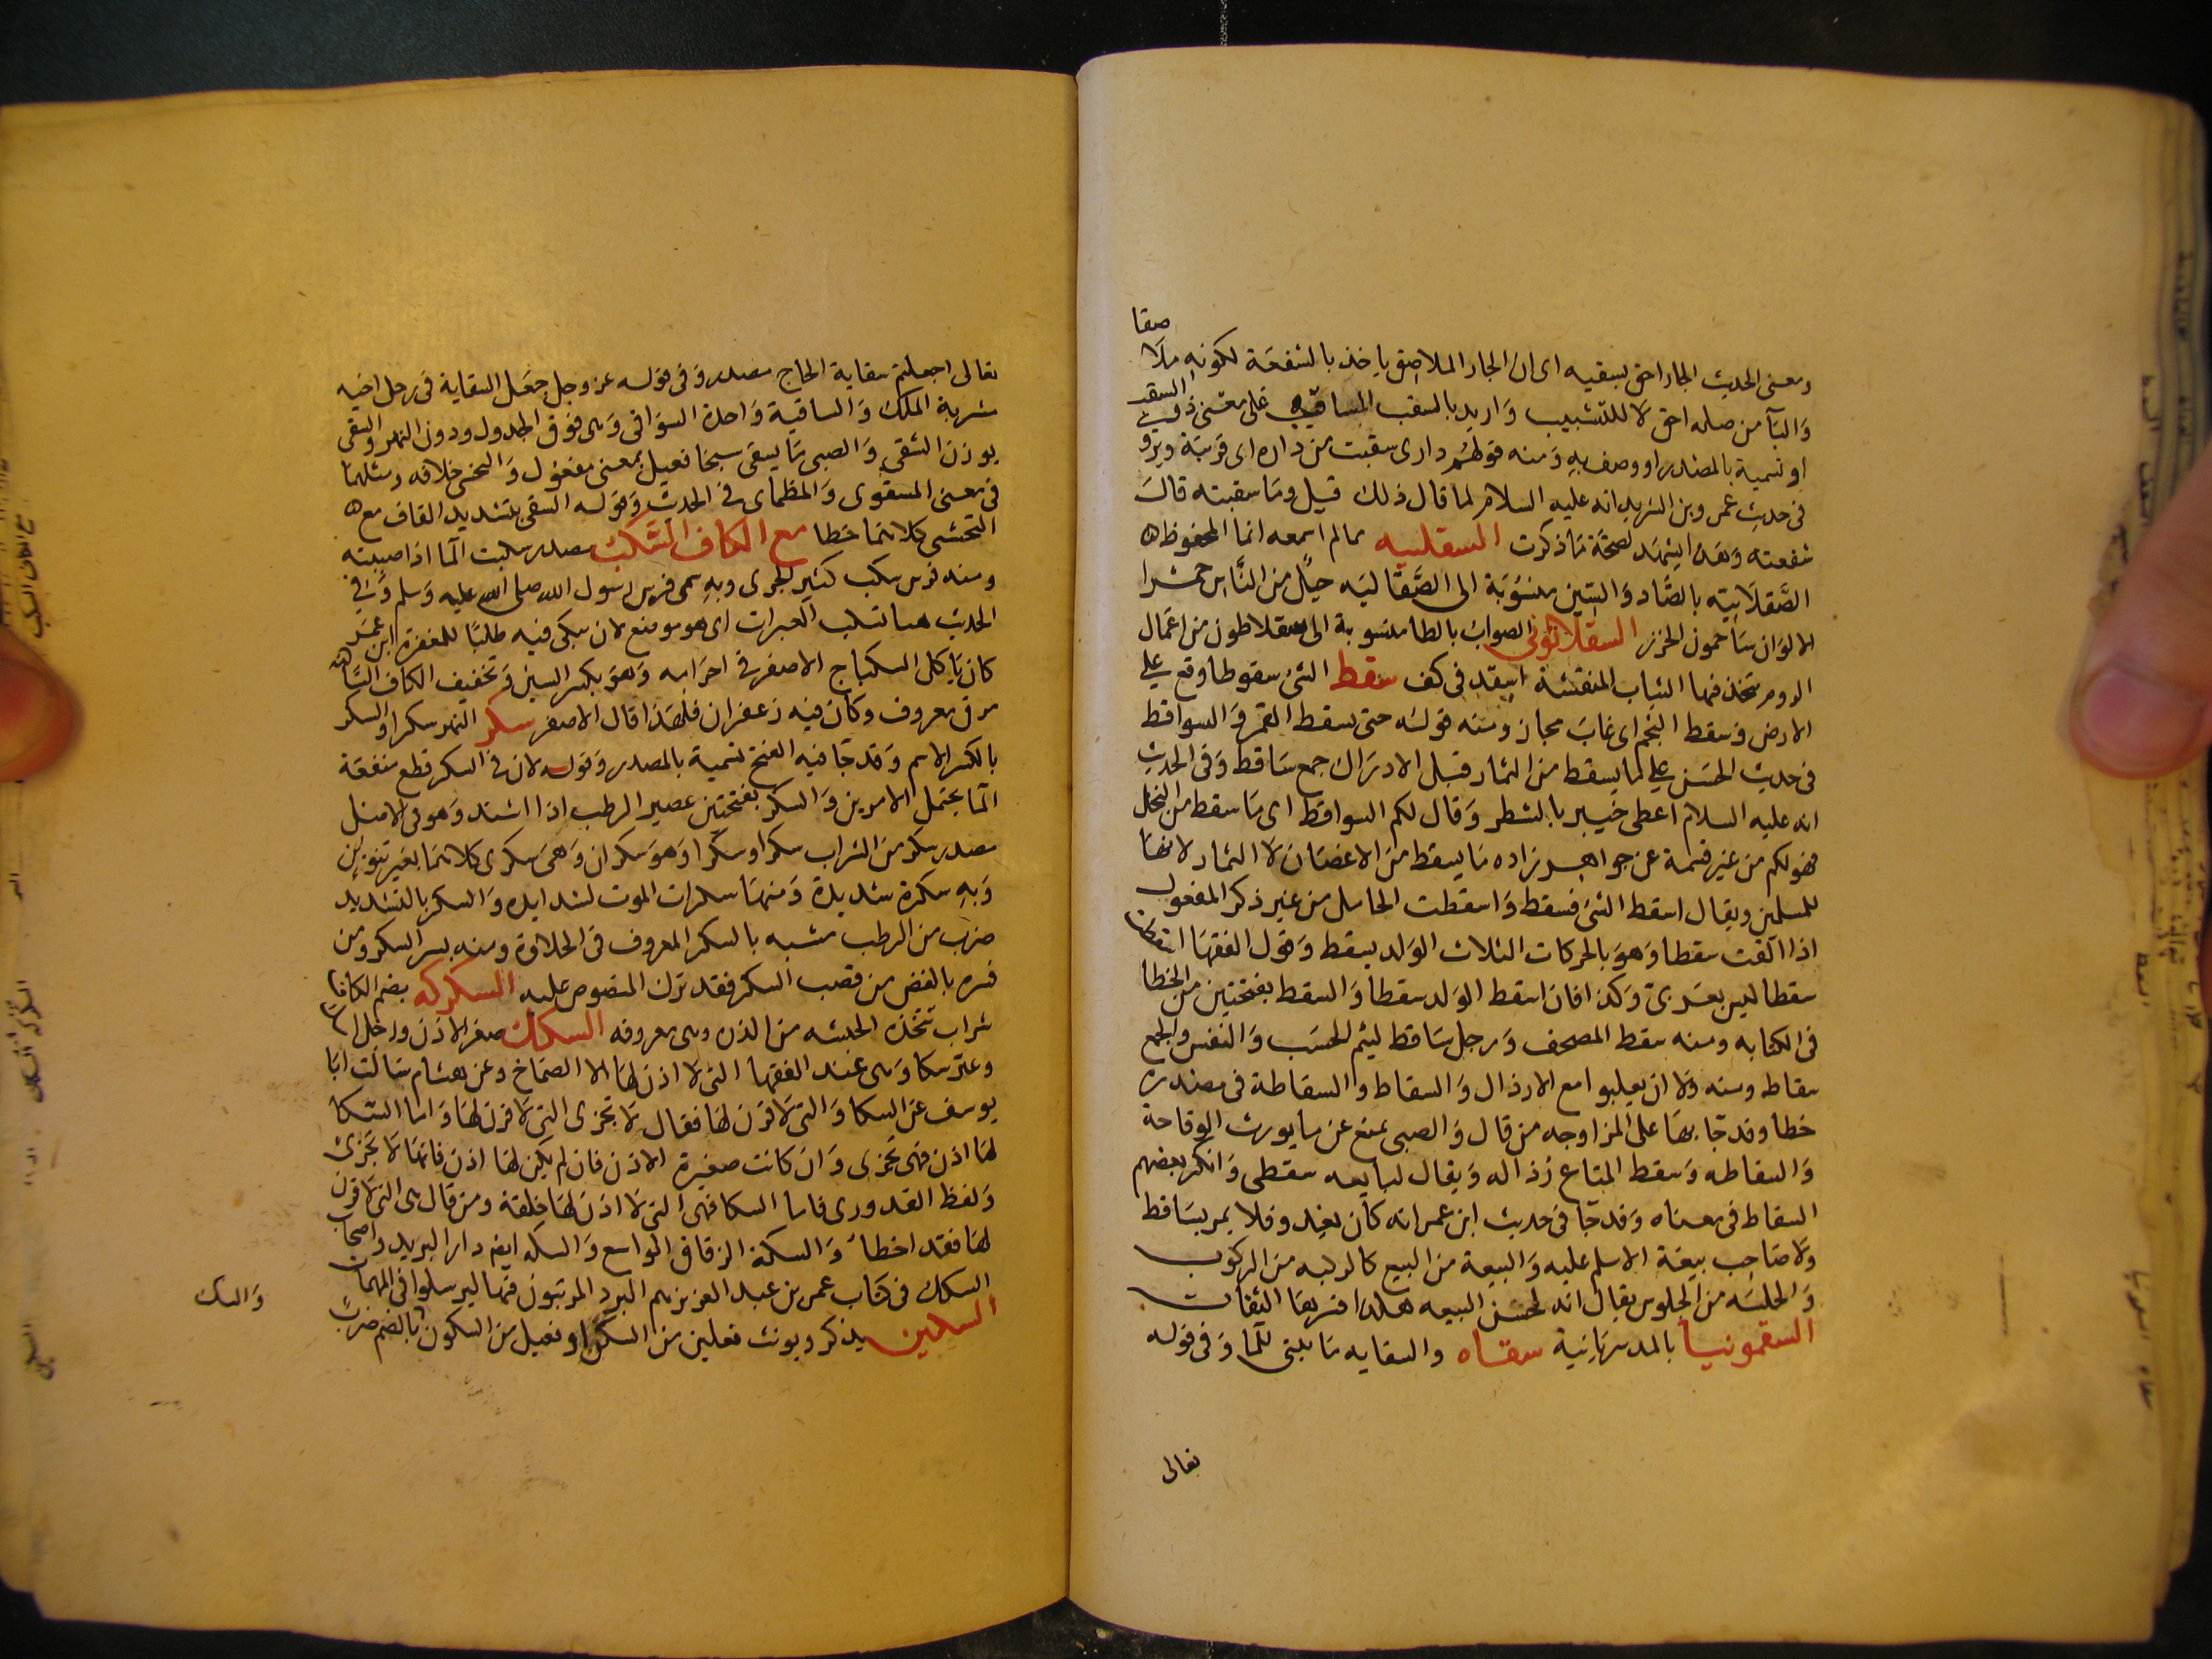 صقا
ومعنى الحديث الجار احق بسقبه اى ان الجار الملاصق ياخذ بالشفعة لكونه ملا
والباء من صله احق لا للتسبيب واريد بالسقب الساقب على معنى ذو السقب
او تسمية بالمصدر او وصف به ومنه قولهم دارى سقبت من داره اى قربت ويروى
فى حديث عمرو بن الشريد انه عليه السلام لما قال ذلك قيل وما سقبته قال
شفعته وهذا يشهد لصحة ما ذكرت السقلبيه مما لم اسمعه انما المحفوظ
الصقلابيه بالصاد والسين منسوبة الى الصقالبه جيل من الناس حمر
الالوان يتاخمون الخزر السقلاتونى الصواب بالطا منسوبة الى سقلاطون من اعمال
الروم يتخذ فيها الثياب المنقشة اسقد فى كف سقط الشئ سقوطا وقع على
الارض وسقط النجم اى غاب مجاز ومنه قوله حتى يسقط القمر والسواقط
فى حديث الحسن على لما يسقط من الثمار قبل الادراك جمع ساقط وفى الحديث
انه عليه السلام اعطى خيبر بالشطر وقال لكم السواقط اى ما سقط من النخل
فهو لكم من غير قسمة عن جواهر زاده ما يسقط من الاغصان لا الثمار لانها
للمسلمين ويقال اسقط الشئ فسقط واسقطت الحامل من غير ذكر المفعول
اذا القت سقطا وهو بالحركات الثلاث الولد يسقط وقول الفقها اسقطت
سقطا ليس بعربى وكذا فان اسقط الولد سقطا والسقط بفتحتين من الخطا
فى الكتابه ومنه سقط المصحف ورجل ساقط لئيم الحسب والنفس والجمع
سقاط ومنه ولا ان يعلبوا مع الارذال والسقاط والسقاطة فى مصدره
خطا وقد جا بها على المزاوجه من قال والصبى يمنع عن ما يورث الوقاحة
والسقاطه وسقط المتاع رذاله ويقال لبايعه سقطى وانكر بعضهم
السقاط فى معناه وقد جا فى حديث ابن عمر انه كان يغدو فلا يمر بساقط
ولا صاحب بيعة الا سلم عليه والبيعة من البيع كالركبه من الركوب
والجلسه من الجلوس يقال انه لحسن البيعه هكذا فسرها الثقات
السقمونيا بالمد سريانية سقاه والسقايه ما يبنى للما وفى قوله
تعالى
تعالى اجعلتم سقاية الحاج مصدر وفى قوله عز وجل جعل السقاية فى رحل اخيه
مشربة الملك والساقية واحدة السواقى وهى فوق الجدول ودون النهر والسقى
بوزن الشقى والصبى ما يسقى سيحا فعيل بمعنى مفعول والبخس خلافه ومثلهما
فى معنى المسقوى والمظماى فى الحديث وقوله السقى بتشديد القاف مع
التخسى كلاهما خطا مع الكاف السكب مصدر سكبت الما اذا صببته
ومنه فرس سكب كثير الجرى وبه سمى فرس رسول الله صلى الله عليه وسلم وفى
الحديث ههنا تسكب العبرات اى هو موضع لان يبكى فيه طلبا للمغفرة ابن عمر
كان ياكل السكباج الاصفر فى احرامه وهو بكسر السين وتخفيف الكاف الشاكنه
مرق معروف وكان فيه زعفران فلهذا قال الاصفر سكر النهر سكرا والسكر
بالكسر الاسم وقد جا فيه الفتح تسمية بالمصدر وقوله لان فى السكر قطع منفعة
الما يحتمل الامرين والسكر بفتحتين عصير الرطب اذا اشتد وهو فى الاصل
مصدر سكر من الشراب سكرا وسكرا وهو سكران وهى سكرى كلاهما بغير تنوين
وبه سكرة شديدة ومنها سكرات الموت لشدايده والسكر بالتشديد
ضرب من الرطب مشبه بالسكر المعروف فى الحلاوة ومنه بسر السكر ومن
فسره بالغض من قصب السكر فقد ترك المنصوص عليه السكركه بضم الكاف
شراب تتخذه الحبشه من الذره وهى معروفه السكك صغر الاذن ورجل اسك
وعنز سكا وهى عند الفقها التى لا اذن لها الا الصماخ وعن هشام سالت ابا
يوسف عن السكا والتى لا قرن لها فقال لا تجزى التى لا قرن لها واما السكا
لها اذن فهى تجزى وان كانت صغيرة الاذن فان لم يكن لها اذن فانها لا تجزئ
ولفظ القدورى فاما السكا فهى التى لا اذن لها خلقة ومن قال هى التى لا قرن
لها فقد اخطا والسكة الزقاق الواسع والسكه ايضا دار البريد واصحاب
السكك فى كتاب عمر بن عبد العزيز هم البرد المرتبون فيها ليرسلوا فى المهمات
السكين يذكر ويونث فعلين من السك او فعيل من السكون بالضم ضرب
والسك